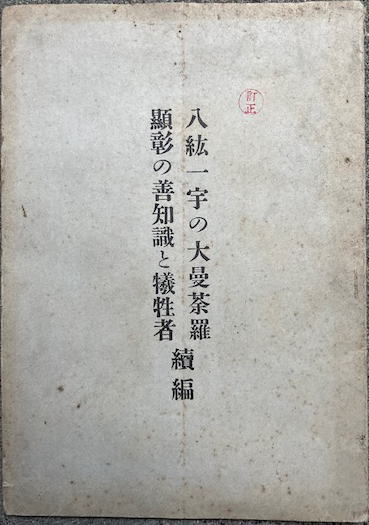 訂正
八紘一宇の大曼荼羅
顯彰の善知識と犠牲者
續編